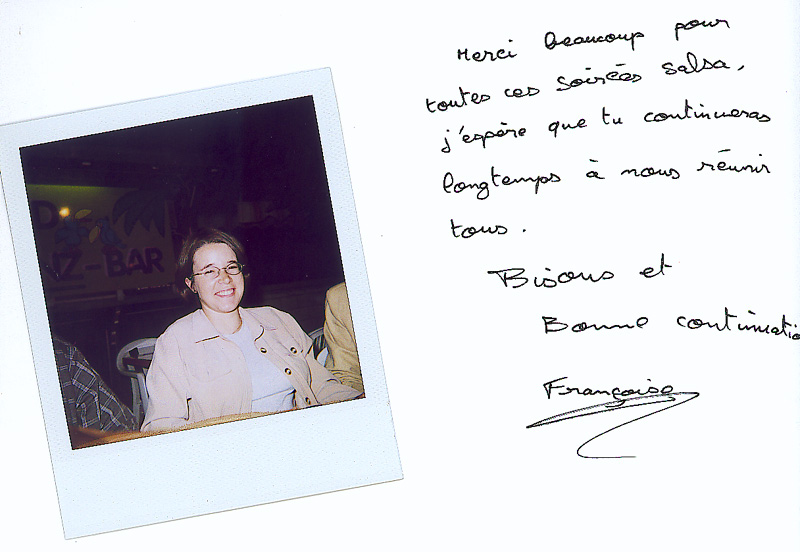 Merci beaucoup pour
toutes ces soirées salsa,
j'espère que tu continueras
longtemps à nous réunir
tous.
Bisous et
Bonne continuatio
Françoise
D
NZ-BAR